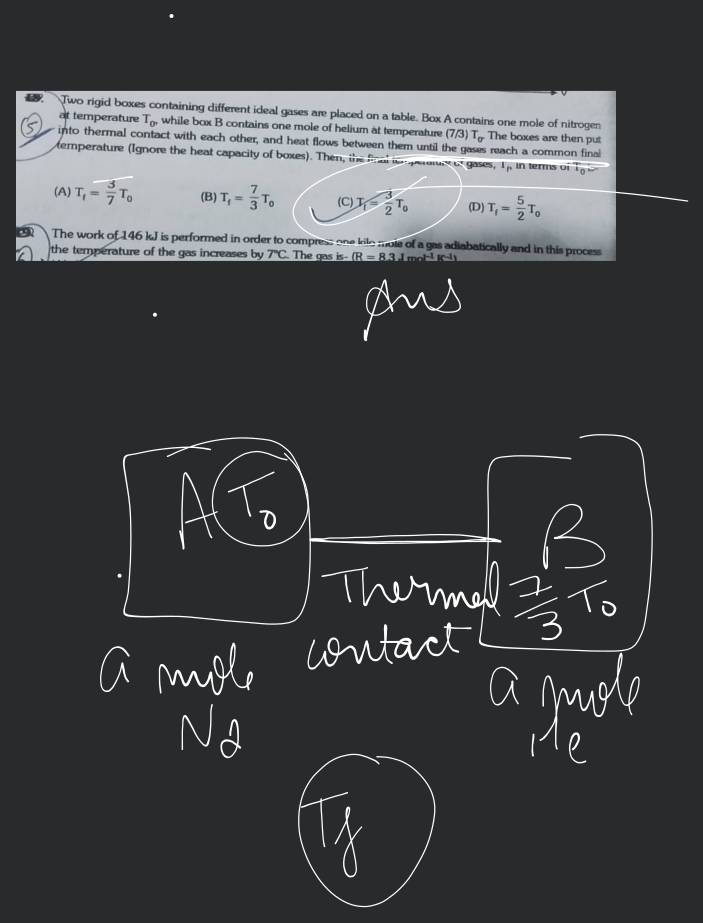 Two rigid boxes containing different ideal gases are placed on a table. Box A contains one mole of nitrogen
at temperature T₀, while box B contains one mole of helium at temperature (7/3) T₀. The boxes are then put
into thermal contact with each other, and heat flows between them until the gases reach a common final
temperature (Ignore the heat capacity of boxes). Then, the final temperature of gases, T_f, in terms of T₀ is-
(A) T_f = 3/7 T₀ (B) T_f = 7/3 T₀ (C) T_f = 3/2 T₀ (D) T_f = 5/2 T₀
The work of 146 kJ is performed in order to compress one kilo mole of a gas adiabatically and in this process
the temperature of the gas increases by 7°C. The gas is- (R = 8.3 J mol⁻¹ K⁻¹)
Ans
A T₀
B
Thermal 7/3 T₀
contact
a mole a mole
N2 He
T_f